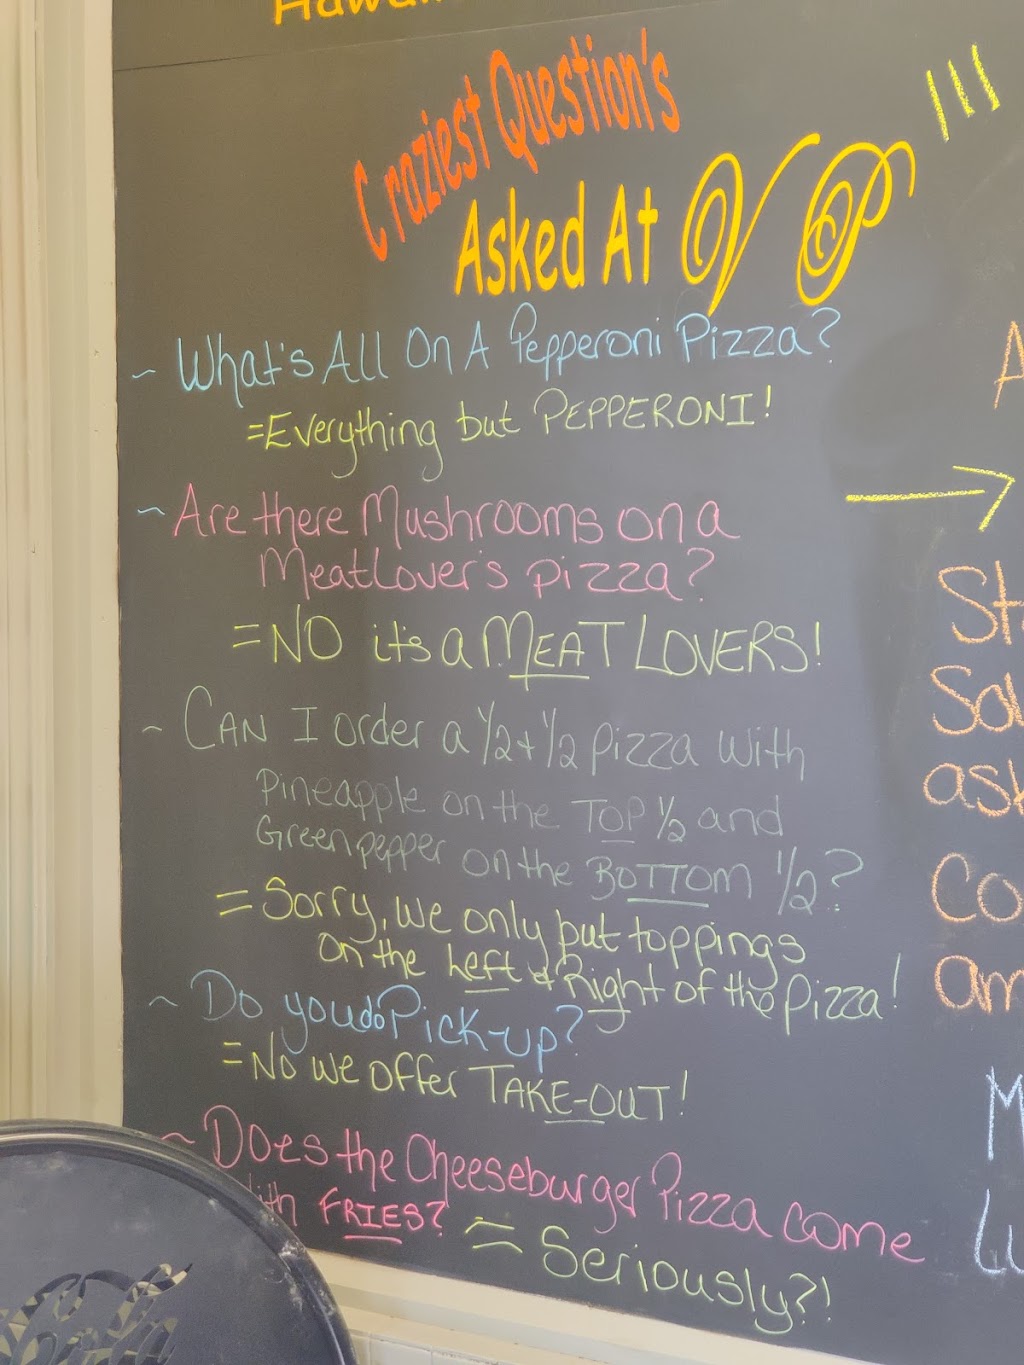 Craziest Question's
Asked At VP
~ What's All On A Pepperoni Pizza?
=Everything but PEPPERONI!
~ Are there Mushrooms on a
MeatLover's pizza?
=NO it's a MEAT LOVERS!
~ CAN I order a 1/2 + 1/2 pizza with
Pineapple on the TOP 1/2 and
Green pepper on the BOTTOM 1/2?
= Sorry, we only put toppings
on the Left & Right of the pizza!
~ Do you do Pick-up?
=No we offer TAKE-OUT!
~ Does the Cheeseburger Pizza come
with FRIES? = Seriously?!